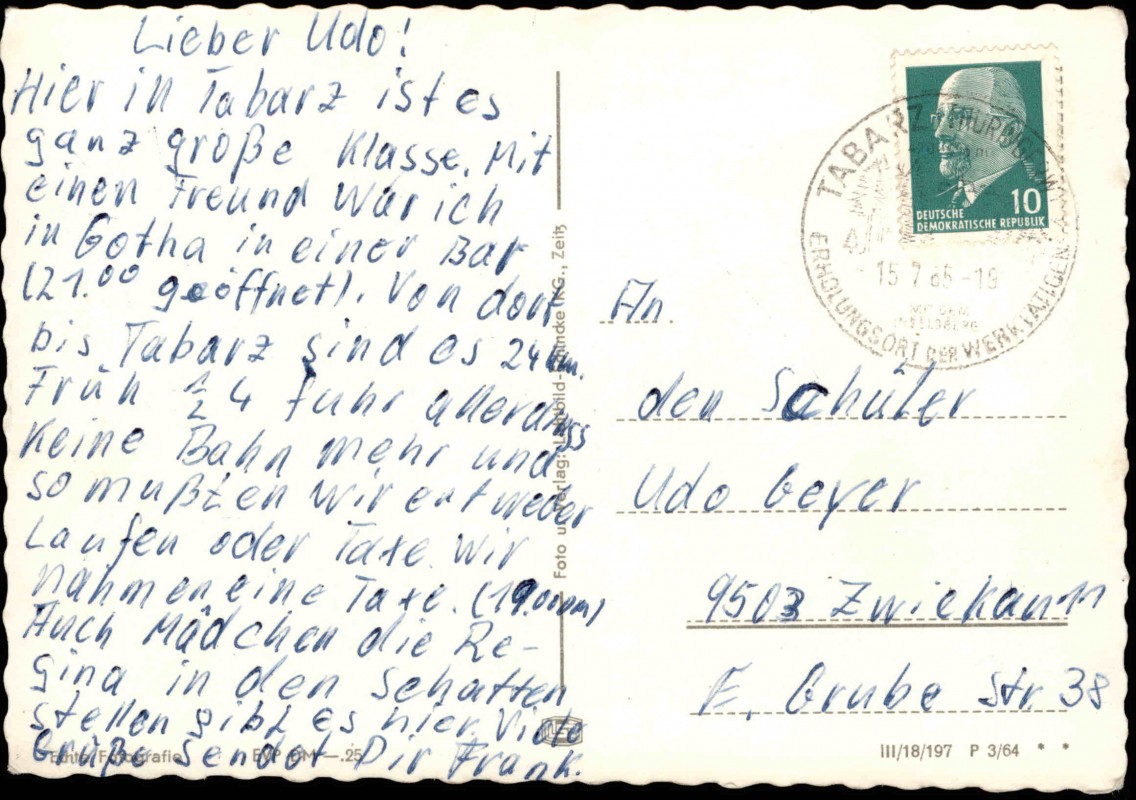 Lieber Udo!
Hier in Tabarz ist es
ganz große Klasse. Mit
einen Freund war ich
in Gotha in einer Bar
(21.00 geöffnet). Von dort
bis Tabarz sind es 24 km.
Früh 1/2 4 fuhr allerdings
keine Bahn mehr und
so mußten wir entweder
laufen oder Taxe. Wir
nahmen eine Taxe. (19.00 DM)
Auch Mädchen die Re-
gina in den Schatten
stellen gibt es hier. Viele
Grüße sendet Dir Frank.
Echte Fotografie EVP DM -.25
Foto u. Verlag: KG., Zeitz
TABARZ THÜRINGER
ERHOLUNGSORT DER WERKTÄTIGEN
15.7.65-19
MIT DEM
INSELSBERG
10
DEUTSCHE
DEMOKRATISCHE REPUBLIK
An
den Schüler
Udo Geyer
9503 Zwickau 11
E. Grube Str. 38
III/18/197 P 3/64 * *